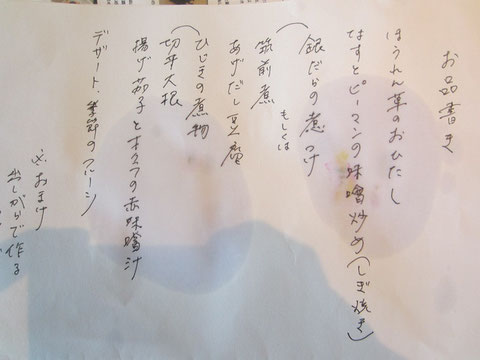 お品書き
ほうれん草のおひたし
なすとピーマンの味噌炒め(しぎ焼き)
銀だらの煮つけ
もしくは
筑前煮
あげだし豆腐
ひじきの煮物
切干大根
揚げ茄子とオクラの赤味噌汁
デザート、季節のフルーツ
※おまけ
出しがらで作る